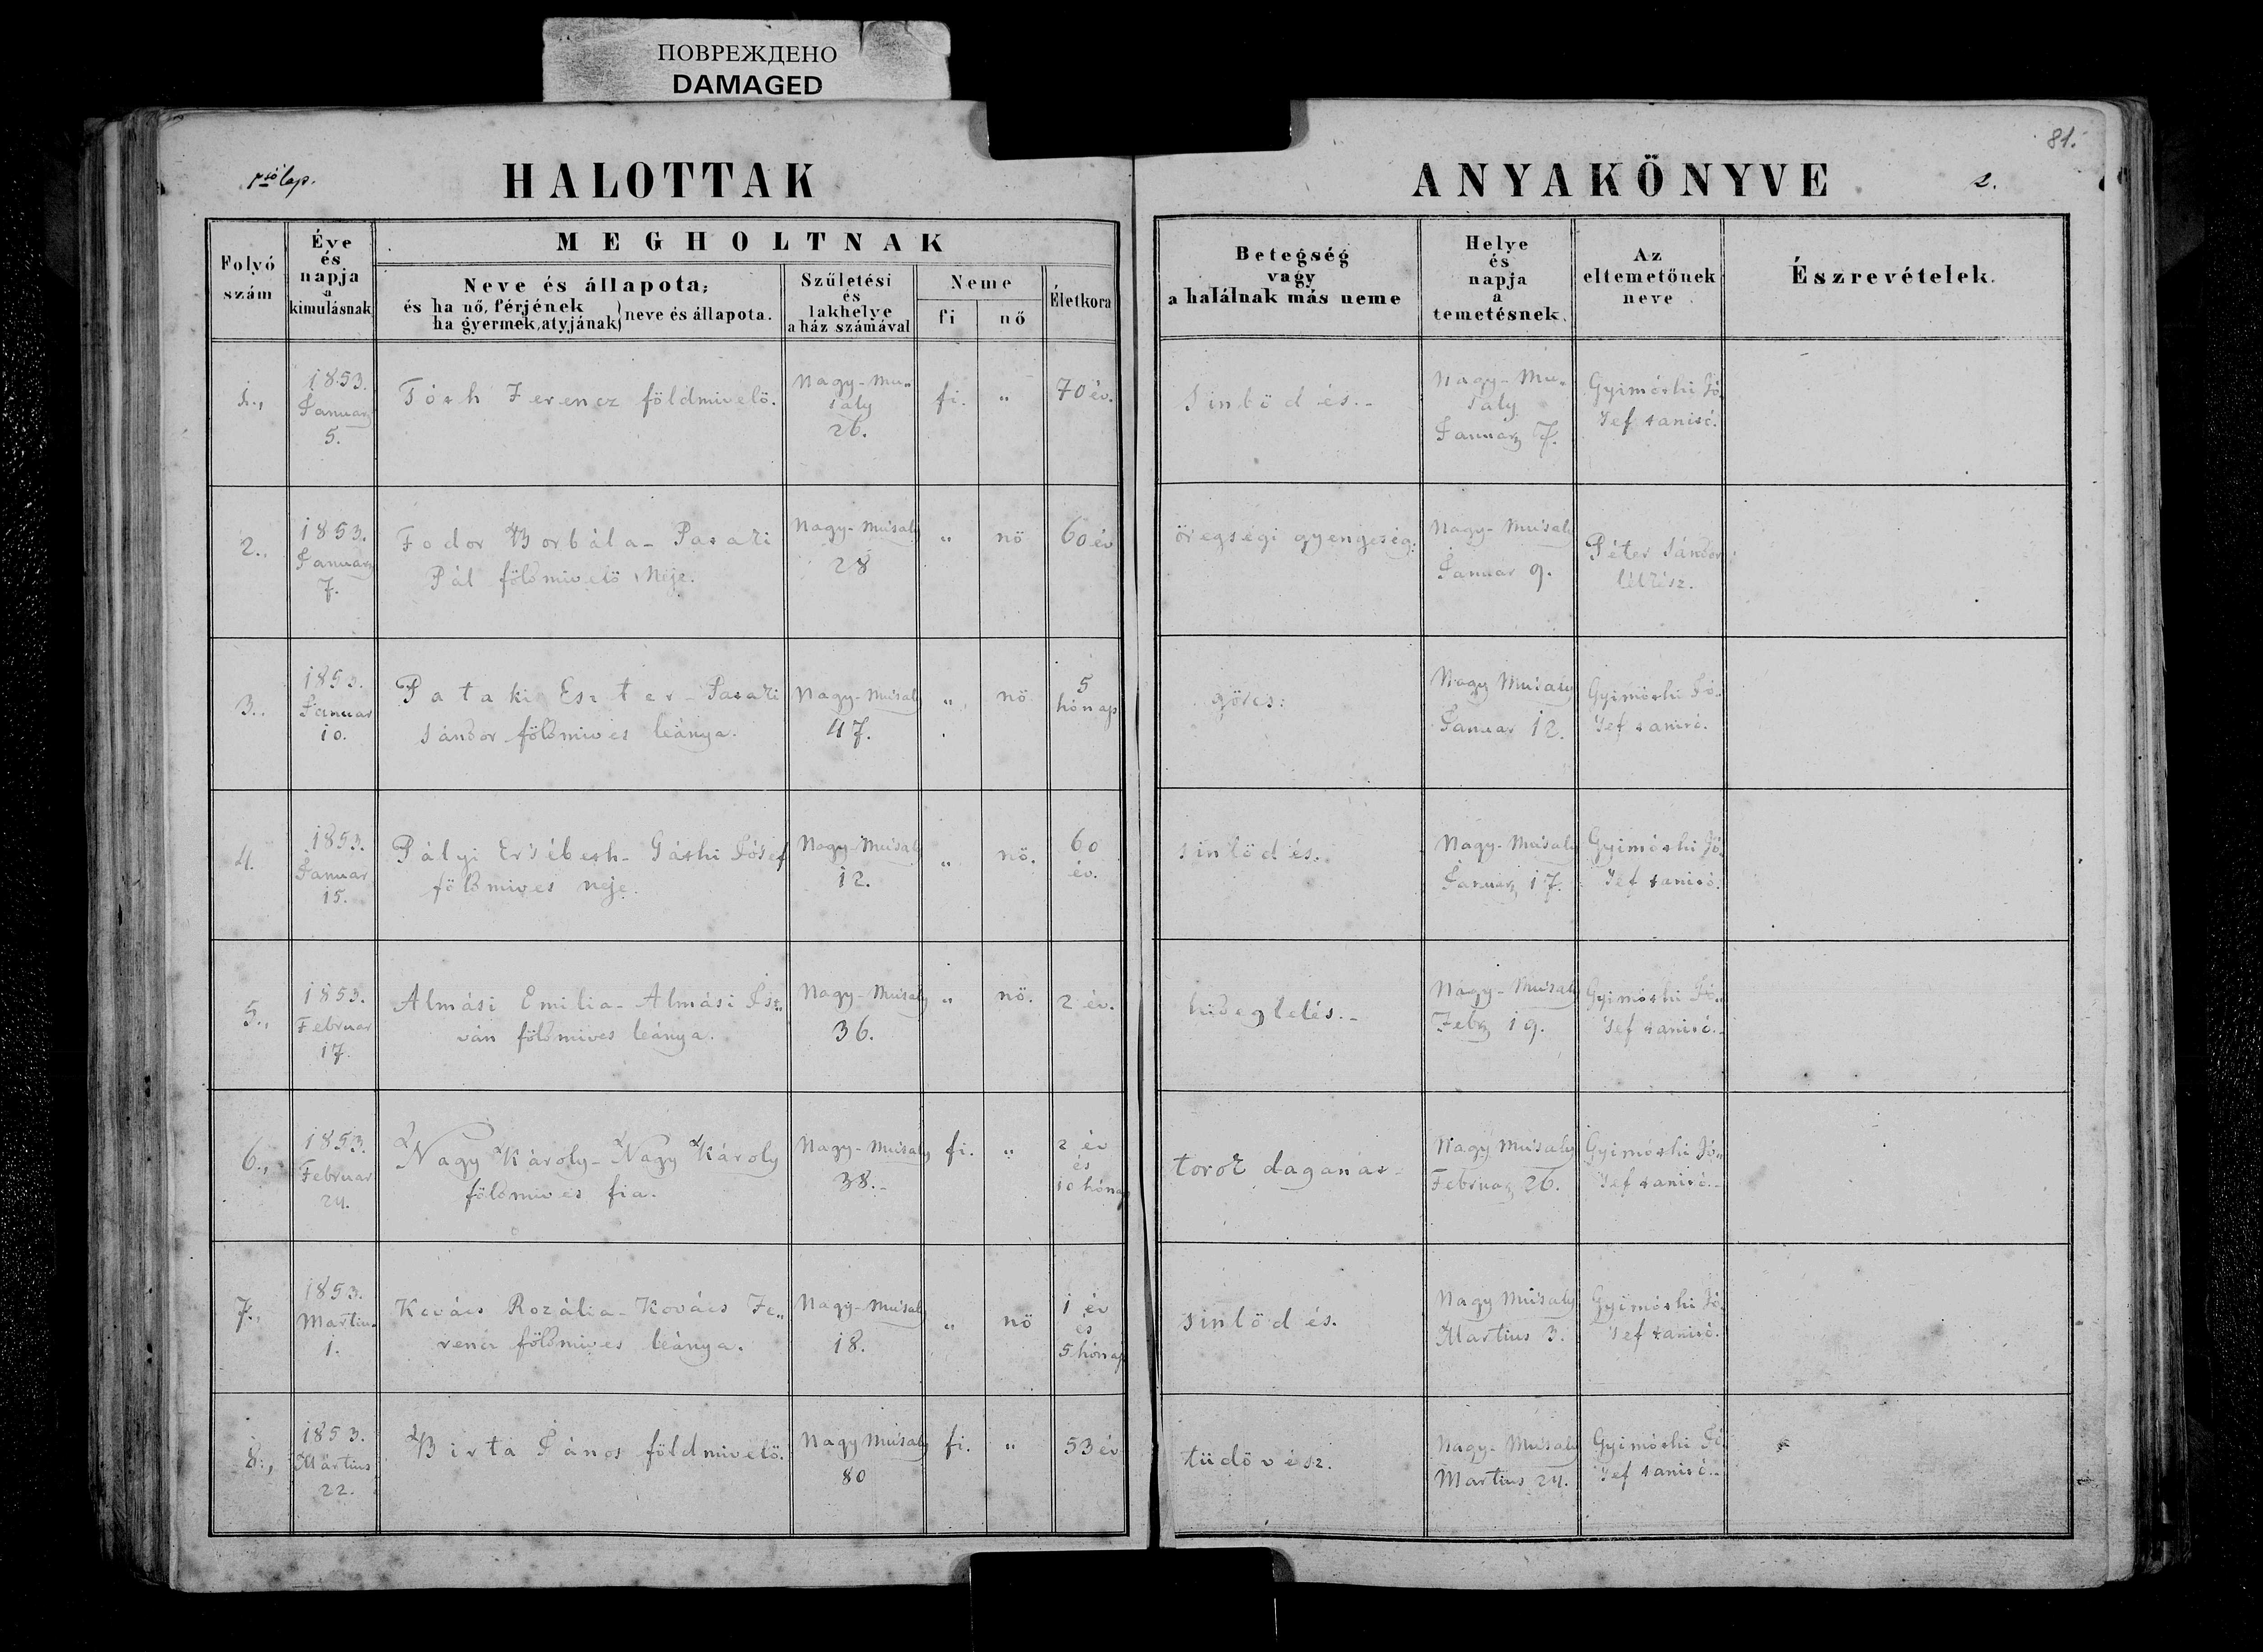 ПОВРЕЖДЕНО
DAMAGED
81.
1ső lap.
HALOTTAK
ANYAKÖNYVE
2.
Folyó szám
Éve és napja a kimulásnak
MEGHOLTNAK
Neve és állapota;
és ha nő, férjének
ha gyermek, atyjának} neve és állapota.
Születési és lakhelye a ház számával
Neme
fi
nő
Életkora
Betegség vagy a halálnak más neme
Helye és napja a temetésnek.
Az eltemetőnek neve
Észrevételek.
1.,
1853. Januar 5.
Tóth Ferencz földmivelö.
Nagy-Mu„ saly 26.
fi.
„
70 év.
Sinlödés.-
Nagy-Mu„ saly Januar 7.
Gyimóthi Jó„ sef tanitó.
2.,
1853. Januar 7.
Fodor Borbála- Pataki
Pál földmivelö Neje.
Nagy-Musaly 28
„
nö
60 év
öregségi gyengeség:
Nagy-Musaly Januar 9.
Péter Sándor lelkész.
3.
1853. Januar 10.
Pataki Eszter- Pataki
Sándor földmives leánya.
Nagy-Musaly 47.
„
nö
5 hónap
görcs:
Nagy Musaly Januar 12.
Gyimóthi Jó„ sef tanitó.
4.
1853. Januar 15.
Pályi Ersébeth- Gáthi Jósef
földmives neje.
Nagy-Musaly 12.
„
nö.
60 év.
sinlödés.
Nagy-Musaly Januar 17.
Gyimóthi Jó„ sef tanitó.
5.,
1853. Februar 17.
Almási Emilia- Almási Ist„
ván földmives leánya.
Nagy-Musaly 36.
„
nö.
2 év.
hideglelés.-
Nagy-Musaly Febr 19.
Gyimóthi Jó„ sef tanitó.-
6.,
1853. Februar 24.
Nagy Károly- Nagy Károly
földmives fia.
Nagy-Musaly 38.-
fi.
„
2 év és 10 hónap
torok daganat-
Nagy Musaly Februar 26.
Gyimóthi Jó„ sef tanitó.-
7.,
1853. Martius 1.
Kovács Rozália- Kovács Fe„
rencz földmives leánya.
Nagy-Musaly 18.
„
nö
1 év és 5 hónap
sinlödés.
Nagy Musaly Martius 3.
Gyimóthi Jó„ sef tanitó.
8.,
1853. Martius 22.
Birta János földmivelö.
Nagy Musaly 80
fi.
„
53 év
tüdövész.
Nagy-Musaly Martius 24.
Gyimóthi Jó„ sef tanitó.-